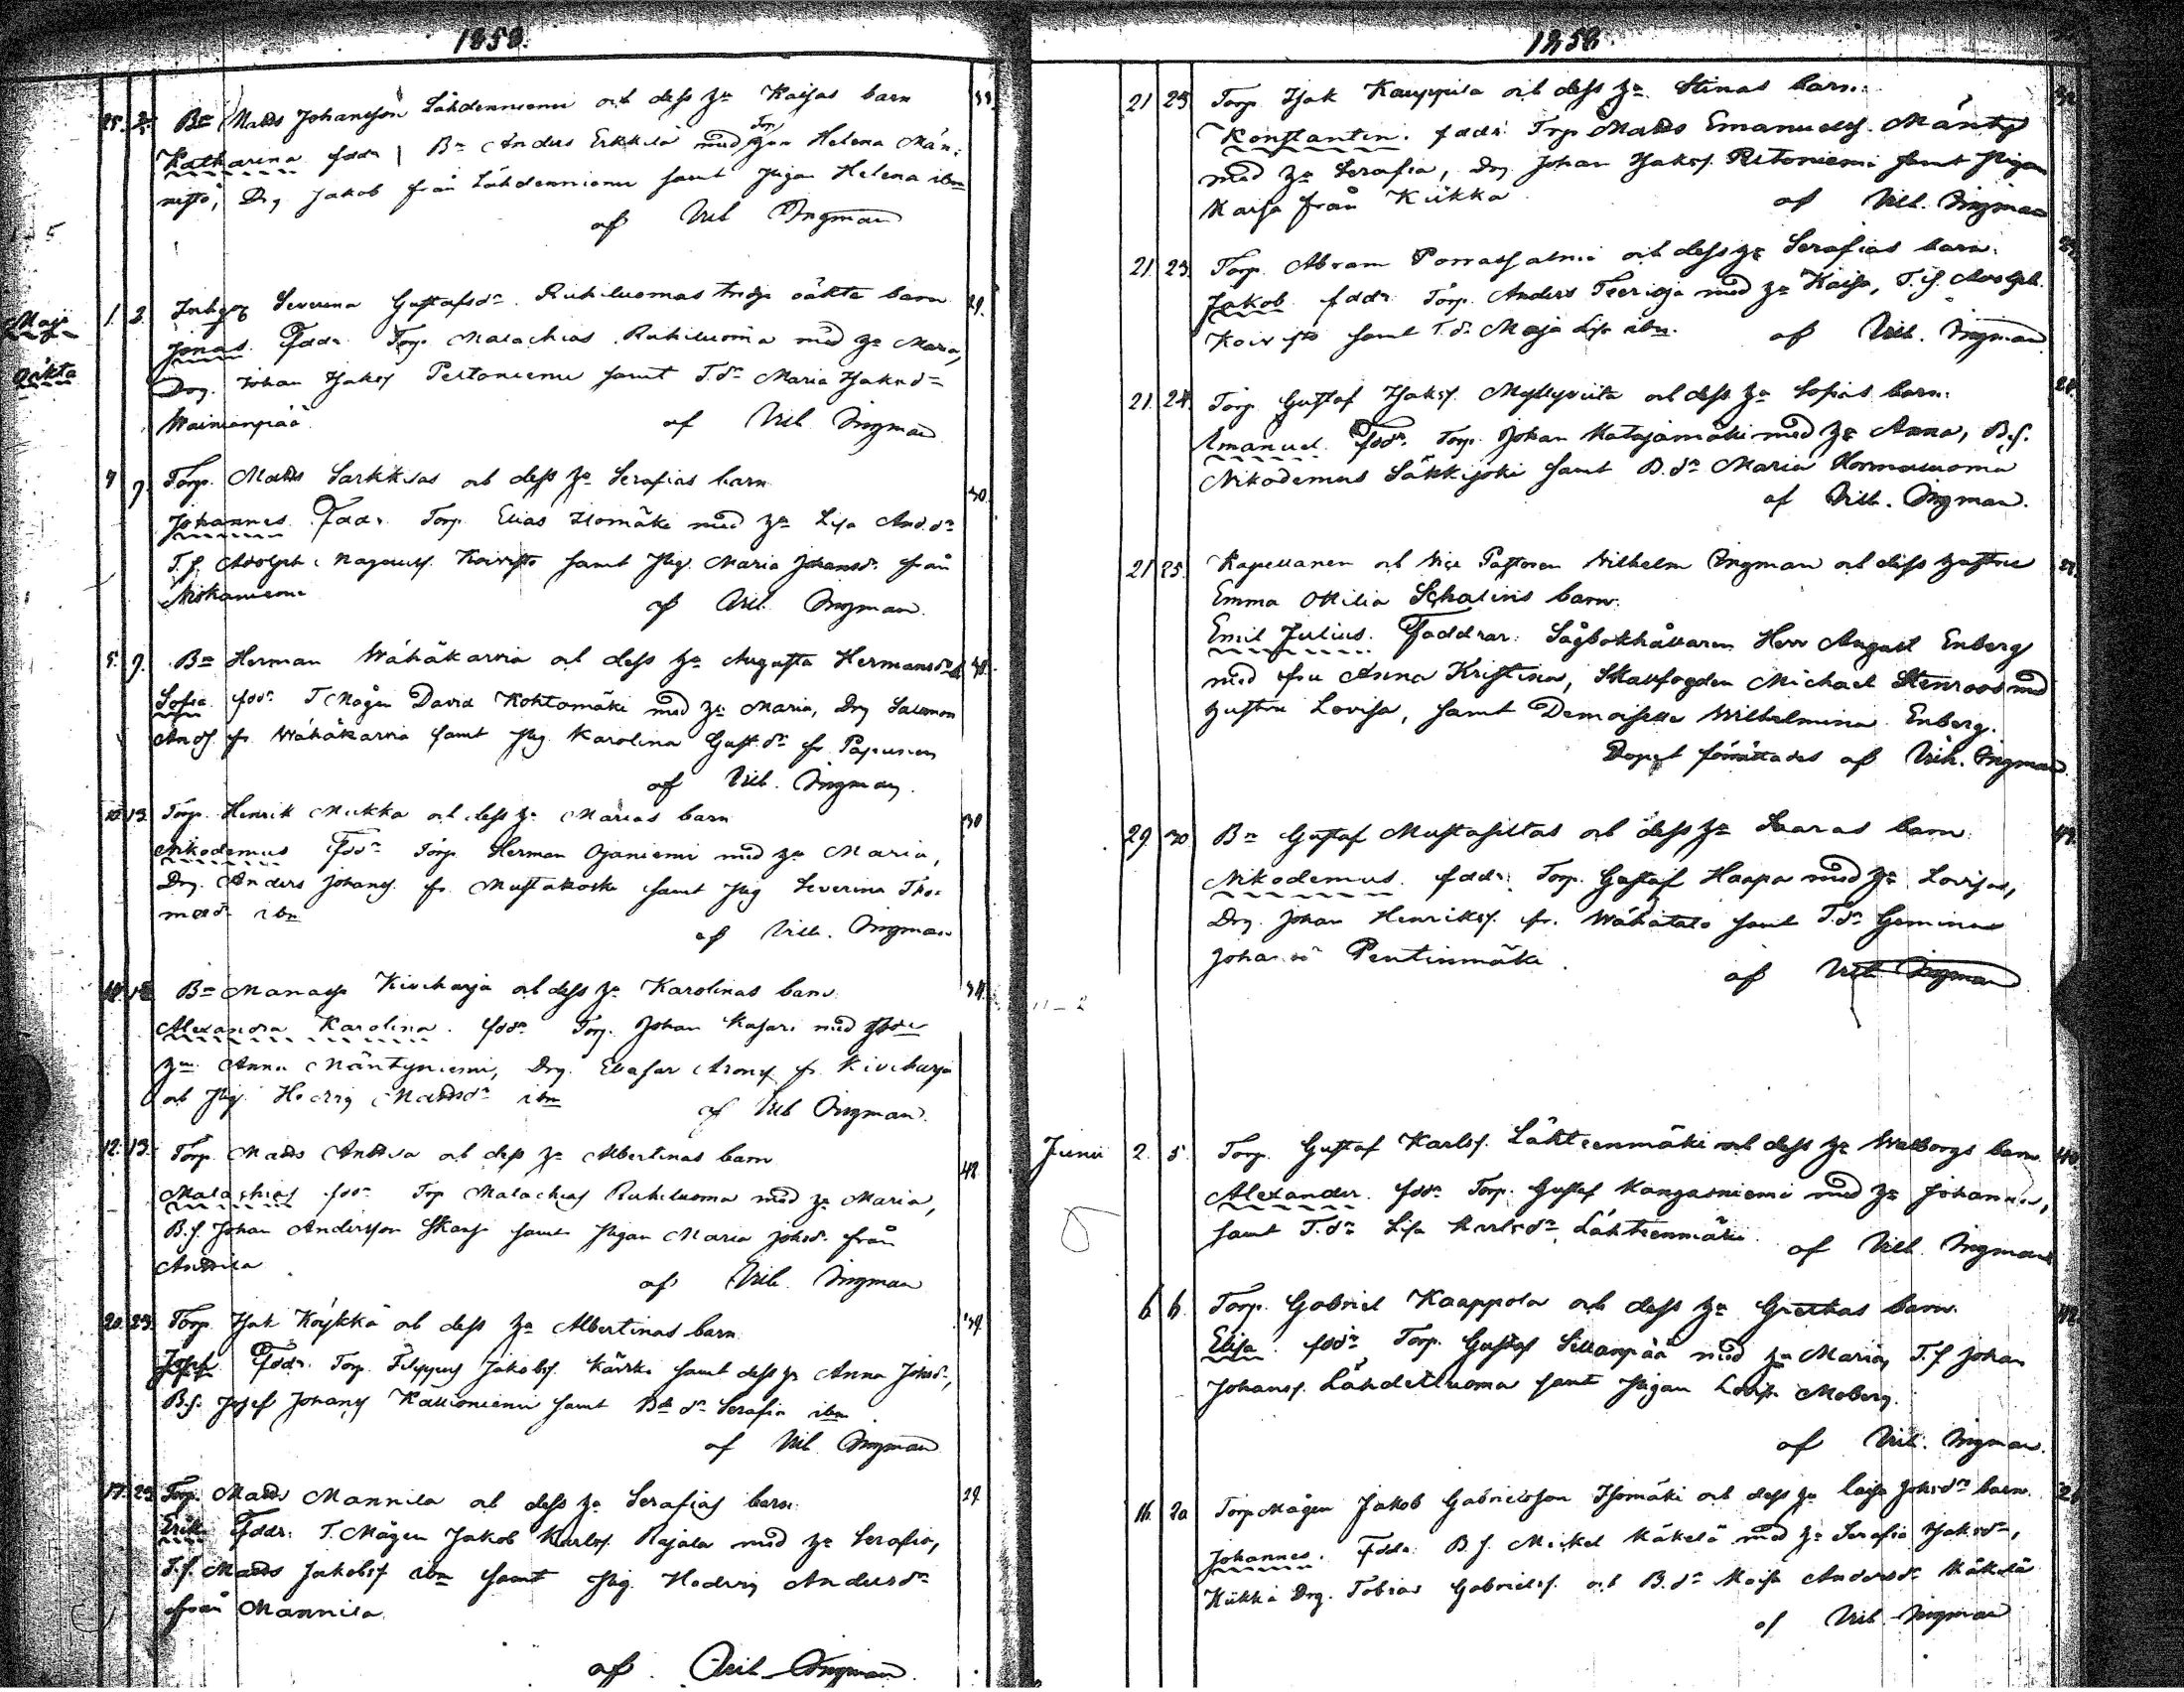 1858.
25. 2. Bn Matts Johansson Lähdenniemi och dess hu Kaisas barn 33.
Katharina faddr Bn Anders Erkkilä med hu Helena Män-
nistö, Drg Jakob från Lähdenniemi samt Pigan Helena ibm
af Vilh Ingman
Maji 1. 2. Inhys Severina Gustafsdr Ruhiluomas tredje oäkta barn 29.
oäkta Jonas. Faddr. Torp. Malachias Ruhiluoma med hu Maria,
Drg. Johan Isaksf Peltoniemi samt T.dr Maria Isaksdr
Wainionpää
af Vilh. Ingman
4 9. Torp. Matts Sarkkilas och dess hu Serafias barn 30.
Johannes. Faddr. Torp. Elias Isomäki med hu Lisa And.dr
T.f. Adolph Koivisto samt Pig. Maria Johansdr från
Niskaniemi
af Vilh. Ingman.
5. 9. Bn Herman Wähäkarvia och dess hu Augusta Hermansdr 40.
Sofia. fddr. T. Mågen David Kohtamäki med hu Maria, Drg Salomon
Andf fr. Wähäkarvia samt Pig. Karolina Gust.dr fr. Papunen
af Vilh. Ingman.
10. 13. Torp. Henrik Mukka och dess hu Marias barn 30
Nikodemus Fddr Torp Herman Ojaniemi med hu Maria,
Drg. Anders Johansf. fr. Mustakoski samt Pig Severina Tho-
masdr ibm
af Vilh. Ingman
Bn Manasse Kiviharja och dess hu Karolinas barn 34.
Alexandra Karolina. fddr Torp. Johan Kasari med
hu Anna Mäntyniemi, Drg. Eliasar Aronsf fr. Kiviharja
och Pig. Hedvig Mattsdr ibm
af Vilh Ingman.
12. 13. Torp. Matts Anttila och dess hu Albertinas barn 42
Malachias fddr Torp Malachias Ruhiluoma med hu Maria,
B.f. Johan Andersson Skarp samt Pigan Maria Johsdr från
Anttila
af Vilh. Ingman
20. 23. Torp. Isak Köykkä och dess hu Albertinas barn 39.
Josef Faddr. Torp. Filippus Jakobsf. Kärki samt dess hu Anna Johsdr,
B.f. Josef Johansf Kallioniemi samt B.dr Serafia ibm
af Vilh. Ingman
17. 23. Torp. Matts Mannila och dess hu Serafias barn. 29.
Erik Faddr. T. Mågen Jakob Karlsf. Rajala med hu Serafia,
T.f. Matts Jakobsf ibm samt Pig. Hedvig Andersdr
från Mannila.
af. Vilh Ingman.
1858.
21 23 Torp. Isak Kauppila och dess hu Stinas barn. 32
Konstantin. faddr. Trp Matts Emanuelsf. Mänty
med hu Serafia, Drg Johan Isaksf. Peltoniemi samt Pigan
Kaisa från Kiikka
af Vilh. Ingman
21. 23. Torp. Abram Porrassalmi och dess hu Serafias barn.
Jakob. faddr. Torp. Anders Teerioja med hu Kaisa, T.f. Adolph
Koivisto samt T.dr Maja Lisa ibm. af Vilh. Ingman
21. 24. Torp. Gustaf Isaksf. Myllyviita och dess hu Sofias barn. 28.
Emanuel. Fddr. Torp. Johan Katajamäki med hu Anna, B.f.
Nikodemus Säkkijoki samt B.dr Maria Hormaluoma
af Vilh. Ingman.
21 25. Kapellanen och Vice Pastoren Wilhelm Ingman och dess hustru
Emma Ottilia Schalins barn.
Emil Julius. Faddrar. Sågbokhållaren Herr August Enberg
med fru Anna Kristina, Skallfogden Michael Stenroos med
hustru Lovisa, samt Demoiselle Wilhelmina Enberg.
Dopet förrättades af Vilh. Ingman.
29. 30 Bn Gustaf Mustasiltas och dess hu Saaras barn. 49.
Nikodemus. faddr. Torp. Gustaf Haapa med hu Lovisa,
Drg. Johan Henriksf. fr. Wähätalo samt T.dr Gemina
Johansdr Pentinmäki.
af Vilh Ingman
Junii 2. 5. Torp. Gustaf Karlsf. Lähteenmäki och dess hu Walborgs barn. 40.
Alexander. fddr Torp. Gustaf Kangasniemi med hu Johanna,
samt T.dr Lisa Karlsdr Lähteenmäki. af Vilh. Ingman
6 6. Torp. Gabriel Kaappola och dess hu Greetas barn. 42.
Elisa. fddr Torp. Gustaf Sillanpää med hu Maria, T.f. Johan
Johansf. Lähdetluoma samt Pigan Lovisa Moberg.
af Vilh. Ingman.
16. 20 Torp. Mågen Jakob Gabrielsson Isomäki och dess hu Caisa Johsdr barn.
Johannes. Faddr. B.f. Mickel Mäkelä med hu Serafia Isaksdr,
Kiikka Drg. Tobias Gabrielsf. och B.dr Maja Andersdr Mäkelä
af Vilh. Ingman